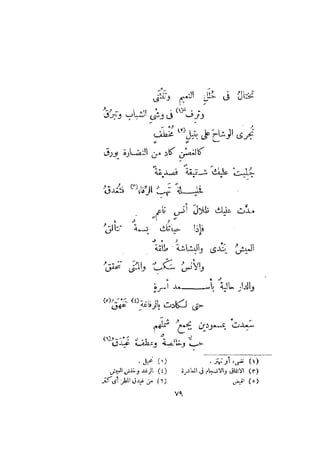 تختال فى حُلَلِ النعيم وتَنْثَنى
وترِفُّ(١) فى وَشْىِ الشباب وتَبْرُقُ
تُجرى الوِشاحَ على بَتيلٍ(٢) مُخْطَفٍ
كالغصنِ كاد من النضارة يورق
جُلبتْ عليكَ شقيقةٌ فصديقةٌ
تَهَبُ الرِّفاءَ(٣) فتُغدِقُ
مدّت عليك ظلالَ أُنسٍ ناعمٍ
فإذا حياتك بسمةٌ تتألقُ
العيشُ يَنْدى والبشاشةُ طَلْقةٌ
والأنسُ يَسكب والمُنَى تتحققُ
والدار حاليةٌ بأسعد أسرةٍ
حتى لكادت بالرفاغةِ(٤) تَفْهَقُ(٥)
سَعِدتْ بمسعودين يجمعُ شملَهم
حبٌّ وخالصةٌ وعطفٌ غَيْدَقُ(٦)
(١) تضىء أو تهتز .
(٢) نحيل .
(٣) الاتفاق والانسجام فى المعاشرة
(٤) الرغد وخفض العيش
(٥) تفيض
(٦) من غيدق المطر أى كثر
٧٩